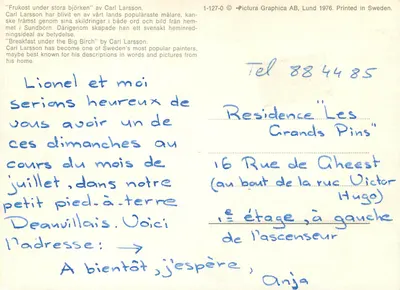 "Frukost under stora björken" av Carl Larsson.
Carl Larsson har blivit en av vårt lands populäraste målare, kan-
ske främst genom sina skildringar i både ord och bild från hem-
met i Sundborn. Därigenom skapade han ett svenskt heminred-
ningsideal av betydelse.
"Breakfast under the Big Birch" by Carl Larsson.
Carl Larsson has become one of Sweden's most popular painters,
maybe best known for his descriptions in words and pictures from
his home.
1-127-0 © Pictura Graphica AB, Lund 1976. Printed in Sweden.
Lionel et moi
serions heureux de
vous avoir un de
ces dimanches au
cours du mois de
juillet, dans notre
petit pied-à-terre
Deauvillais. Voici
l'adresse: →
A bientôt, j'espère,
Anja
Tel 88 44 85
Residence "Les
Grands Pins"
16 Rue de Gheest
(au bout de la rue Victor
Hugo)
1e étage, à gauche
de l'ascenseur